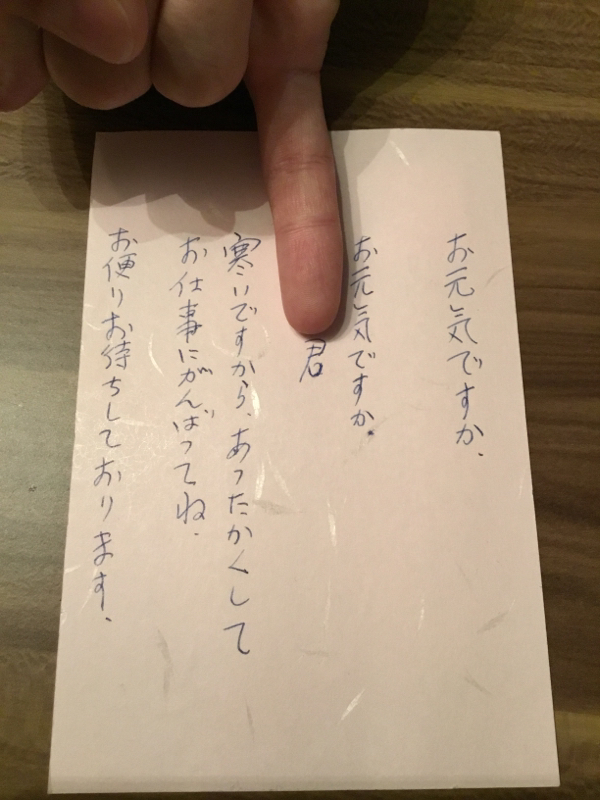 お元気ですか.
お元気ですか.
君
寒いですから、あったかくして
お仕事にがんばってね.
お便りお待ちしております.